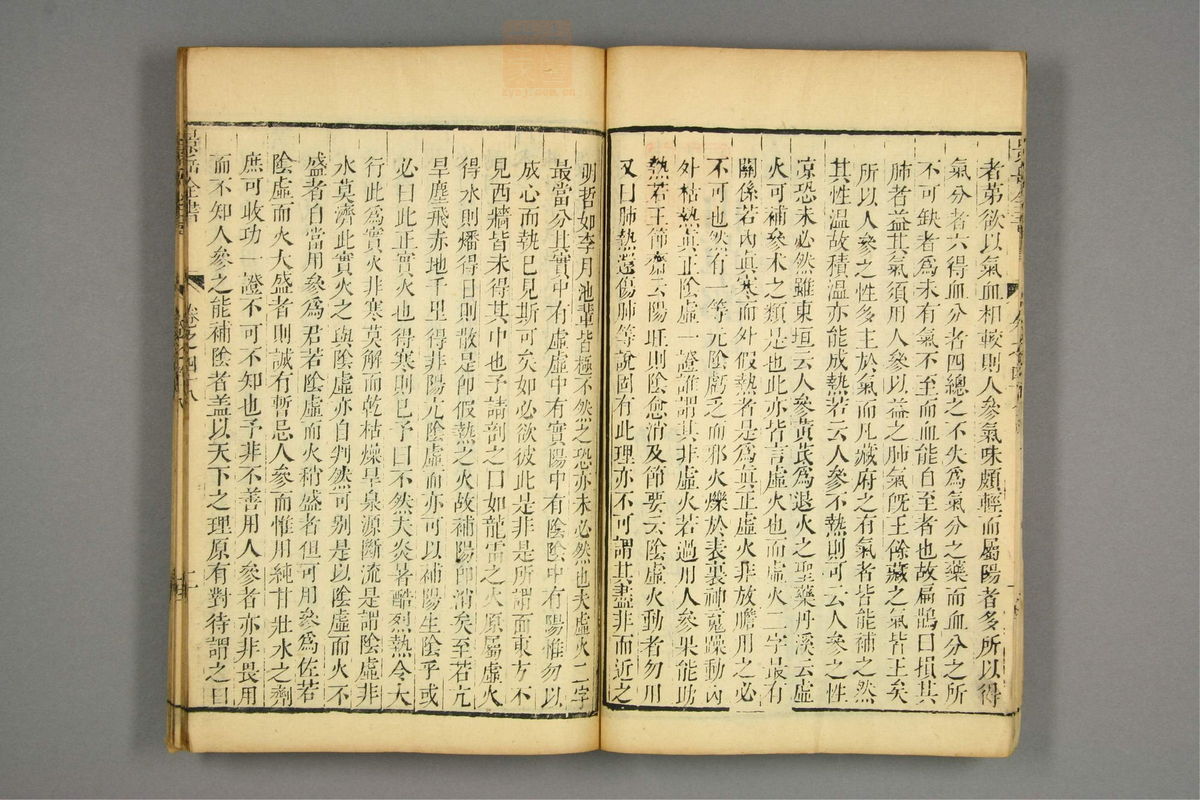 者第欲以氣血相較則人參氣味頗輕而屬陽者多所以得
氣分者六得血分者四總之不失爲氣分之藥而血分之所
不可缺者爲未有氣不至而血能自至者也故扁鵲曰損其
肺者益其氣須用人參以益之肺氣旣王餘藏之氣皆王矣
所以人參之性多主於氣而凡藏府之有氣者皆能補之然
其性溫故積溫亦能成熱若云人參不熱則可云人參之性
凉恐未必然雖東垣云人參黃芪爲退火之聖藥丹溪云虛
火可補參术之類是也此亦皆言虛火也而虛火二字最有
關係若內眞寒而外假熱者是爲眞正虛火非放膽用之必
不可也然有一等元陰虧乏而邪火爍於表裏神䰟躁動內
外枯熱眞正陰虛一證誰謂其非虛火若過用人參果能助
熱若王節齋云陽旺則陰愈消及節要云陰虛火動者勿用
又曰肺熱還傷肺等說固有此理亦不可謂其盡非而近之
明哲如李月池輩皆極不然之恐亦未必然也夫虛火二字
最當分其實中有虛虛中有實陽中有陰陰中有陽惟勿以
成心而執己見斯可矣如必欲彼此是非是所謂面東方不
見西牆皆未得其中也予請剖之曰如龍雷之火原屬虛火
得水則燔得日則散是卽假熱之火故補陽卽消矣至若亢
旱塵飛赤地千里得非陽亢陰虛而亦可以補陽生陰乎或
必曰此正實火也得寒則已予曰不然夫炎暑酷烈熱令大
行此爲實火非寒莫解而乾枯燥旱泉源斷流是謂陰虛非
水莫濟此實火之與陰虛亦自判然可別是以陰虛而火不
盛者自當用參爲君若陰虛而火稍盛者但可用參爲佐若
陰虛而火大盛者則誠有暫忌人參而惟用純甘壯水之劑
庶可收功一證不可不知也予非不善用人參者亦非畏用
而不知人參之能補陰者盖以天下之理原有對待謂之曰
景岳全書
卷之四十八